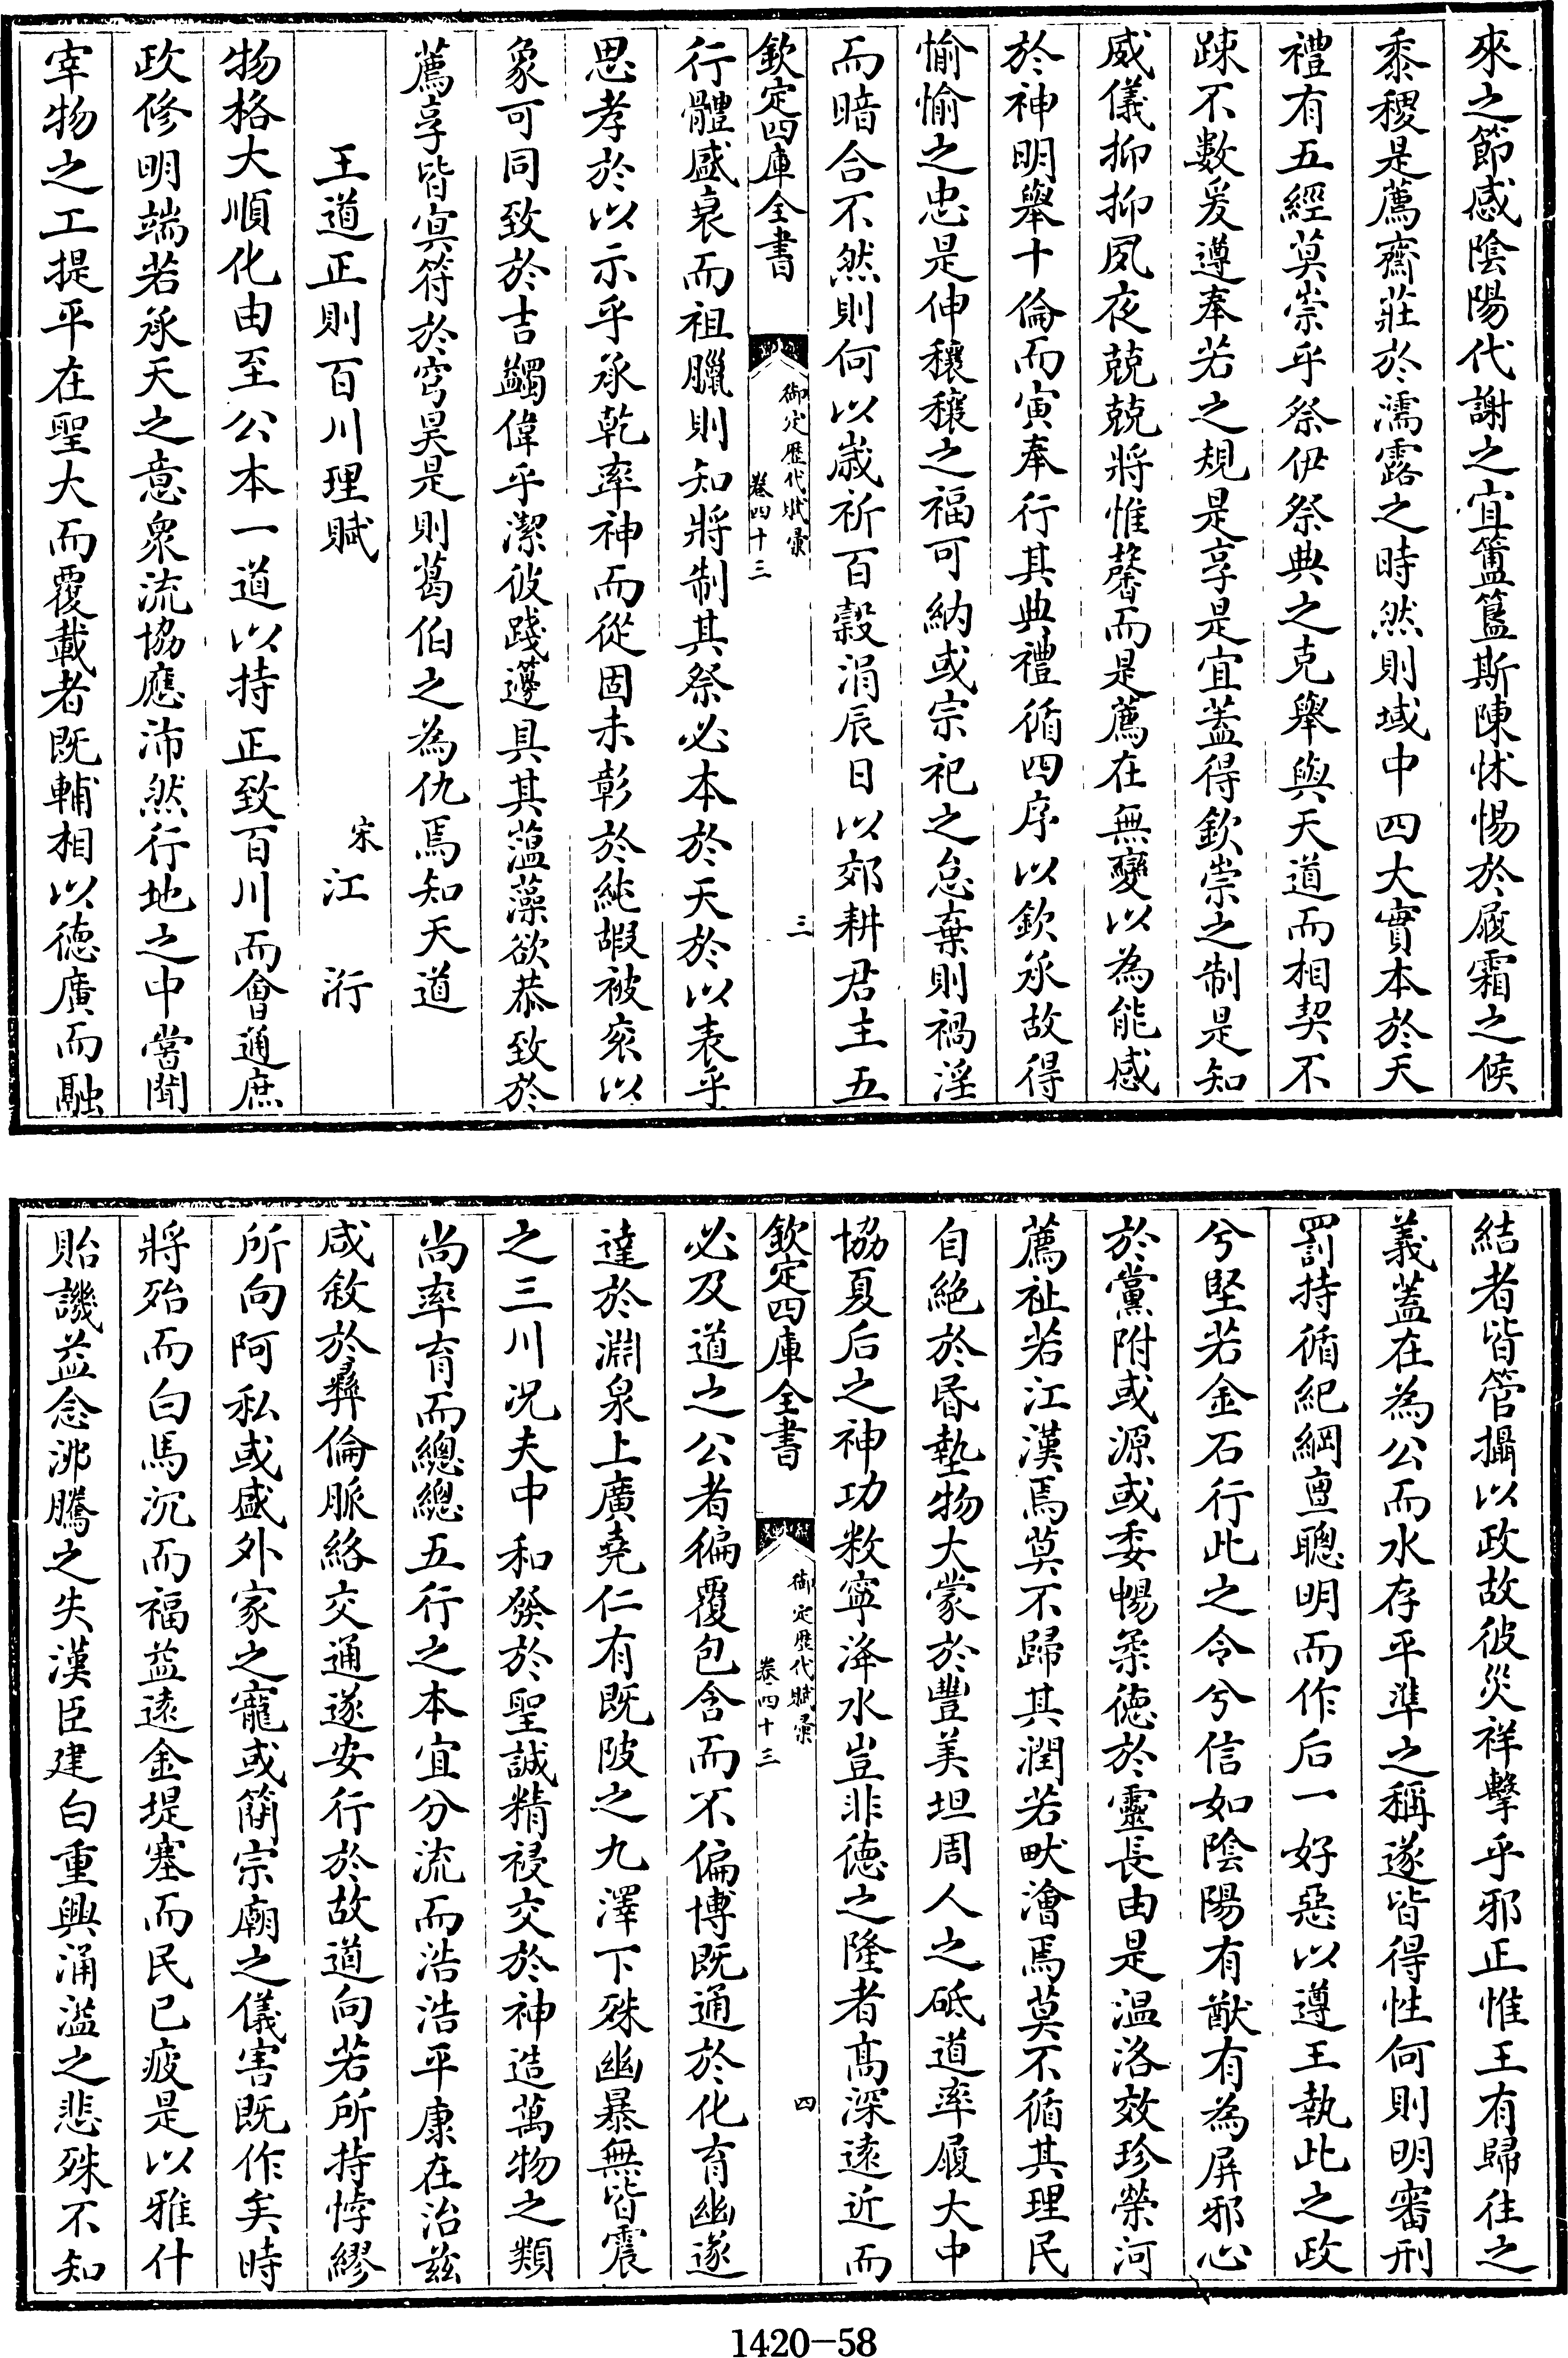 來之節感陰陽代謝之宜簠簋斯陳怵惕於履霜之候
黍稷是薦齋莊於濡露之時然則域中四大實本於天
禮有五經莫崇乎祭伊祭典之克舉與天道而相契不
踈不數爰遵奉若之規是享是宜蓋得欽崇之制是知
威儀抑抑夙夜兢兢將惟馨而是薦在無變以為能感
於神明舉十倫而寅奉行其典禮循四序以欽承故得
愉愉之忠是伸穰穰之福可納或宗祀之怠棄則禍淫
而暗合不然則何以歲祈百穀涓辰日以郊耕君主五
欽定四庫全書
御定歷代賦彙
卷四十三
三
行體盛衰而祖臘則知將制其祭必本於天於以表乎
思孝於以示乎承乾率神而從固未彰於純嘏被衮以
象可同致於吉蠲偉乎潔彼踐籩具其薀藻欲恭致於
薦享皆冥符於穹昊是則葛伯之為仇焉知天道
王道正則百川理賦
宋江洐
物格大順化由至公本一道以持正致百川而會通庶
政修明端若承天之意衆流協應沛然行地之中嘗聞
宰物之工提平在聖大而覆載者既輔相以德廣而融
結者皆管攝以政故彼災祥擊乎邪正惟王有歸往之
義蓋在為公而水存平準之稱遂皆得性何則明審刑
罰持循紀綱亶聰明而作后一好惡以遵王執此之政
兮堅若金石行此之令兮信如陰陽有猷有為屏邪心
於黨附或源或委暢柔德於靈長由是温洛效珍榮河
薦祉若江漢焉莫不歸其潤若畎澮焉莫不循其理民
自絶於昏墊物大蒙於豐美坦周人之砥道率履大中
協夏后之神功敉寧洚水豈非德之隆者髙深遠近而
欽定四庫全書
御定歷代賦彙
卷四十三
四
必及道之公者徧覆包含而不偏博既通於化育幽遂
達於淵泉上廣堯仁有既陂之九澤下殊幽暴無皆震
之三川况夫中和發於聖誠精祲交於神造萬物之類
尚率育而總總五行之本宜分流而浩浩平康在治兹
咸敘於彞倫脈絡交通遂安行於故道向若所持悖繆
所向阿私或盛外家之寵或簡宗廟之儀害既作矣時
將殆而白馬沉而福益遠金堤塞而民已疲是以雅什
貽譏益念沸騰之失漢臣建白重興涌溢之悲殊不知
1420-58